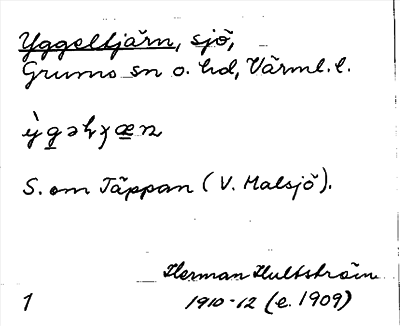 Yggeltjärn, sjö,
Grums sn o. hd, Värml. l.
S. om Täppan (V. Malsjö).
Herman Hultström
1 1910-12 (e. 1909)